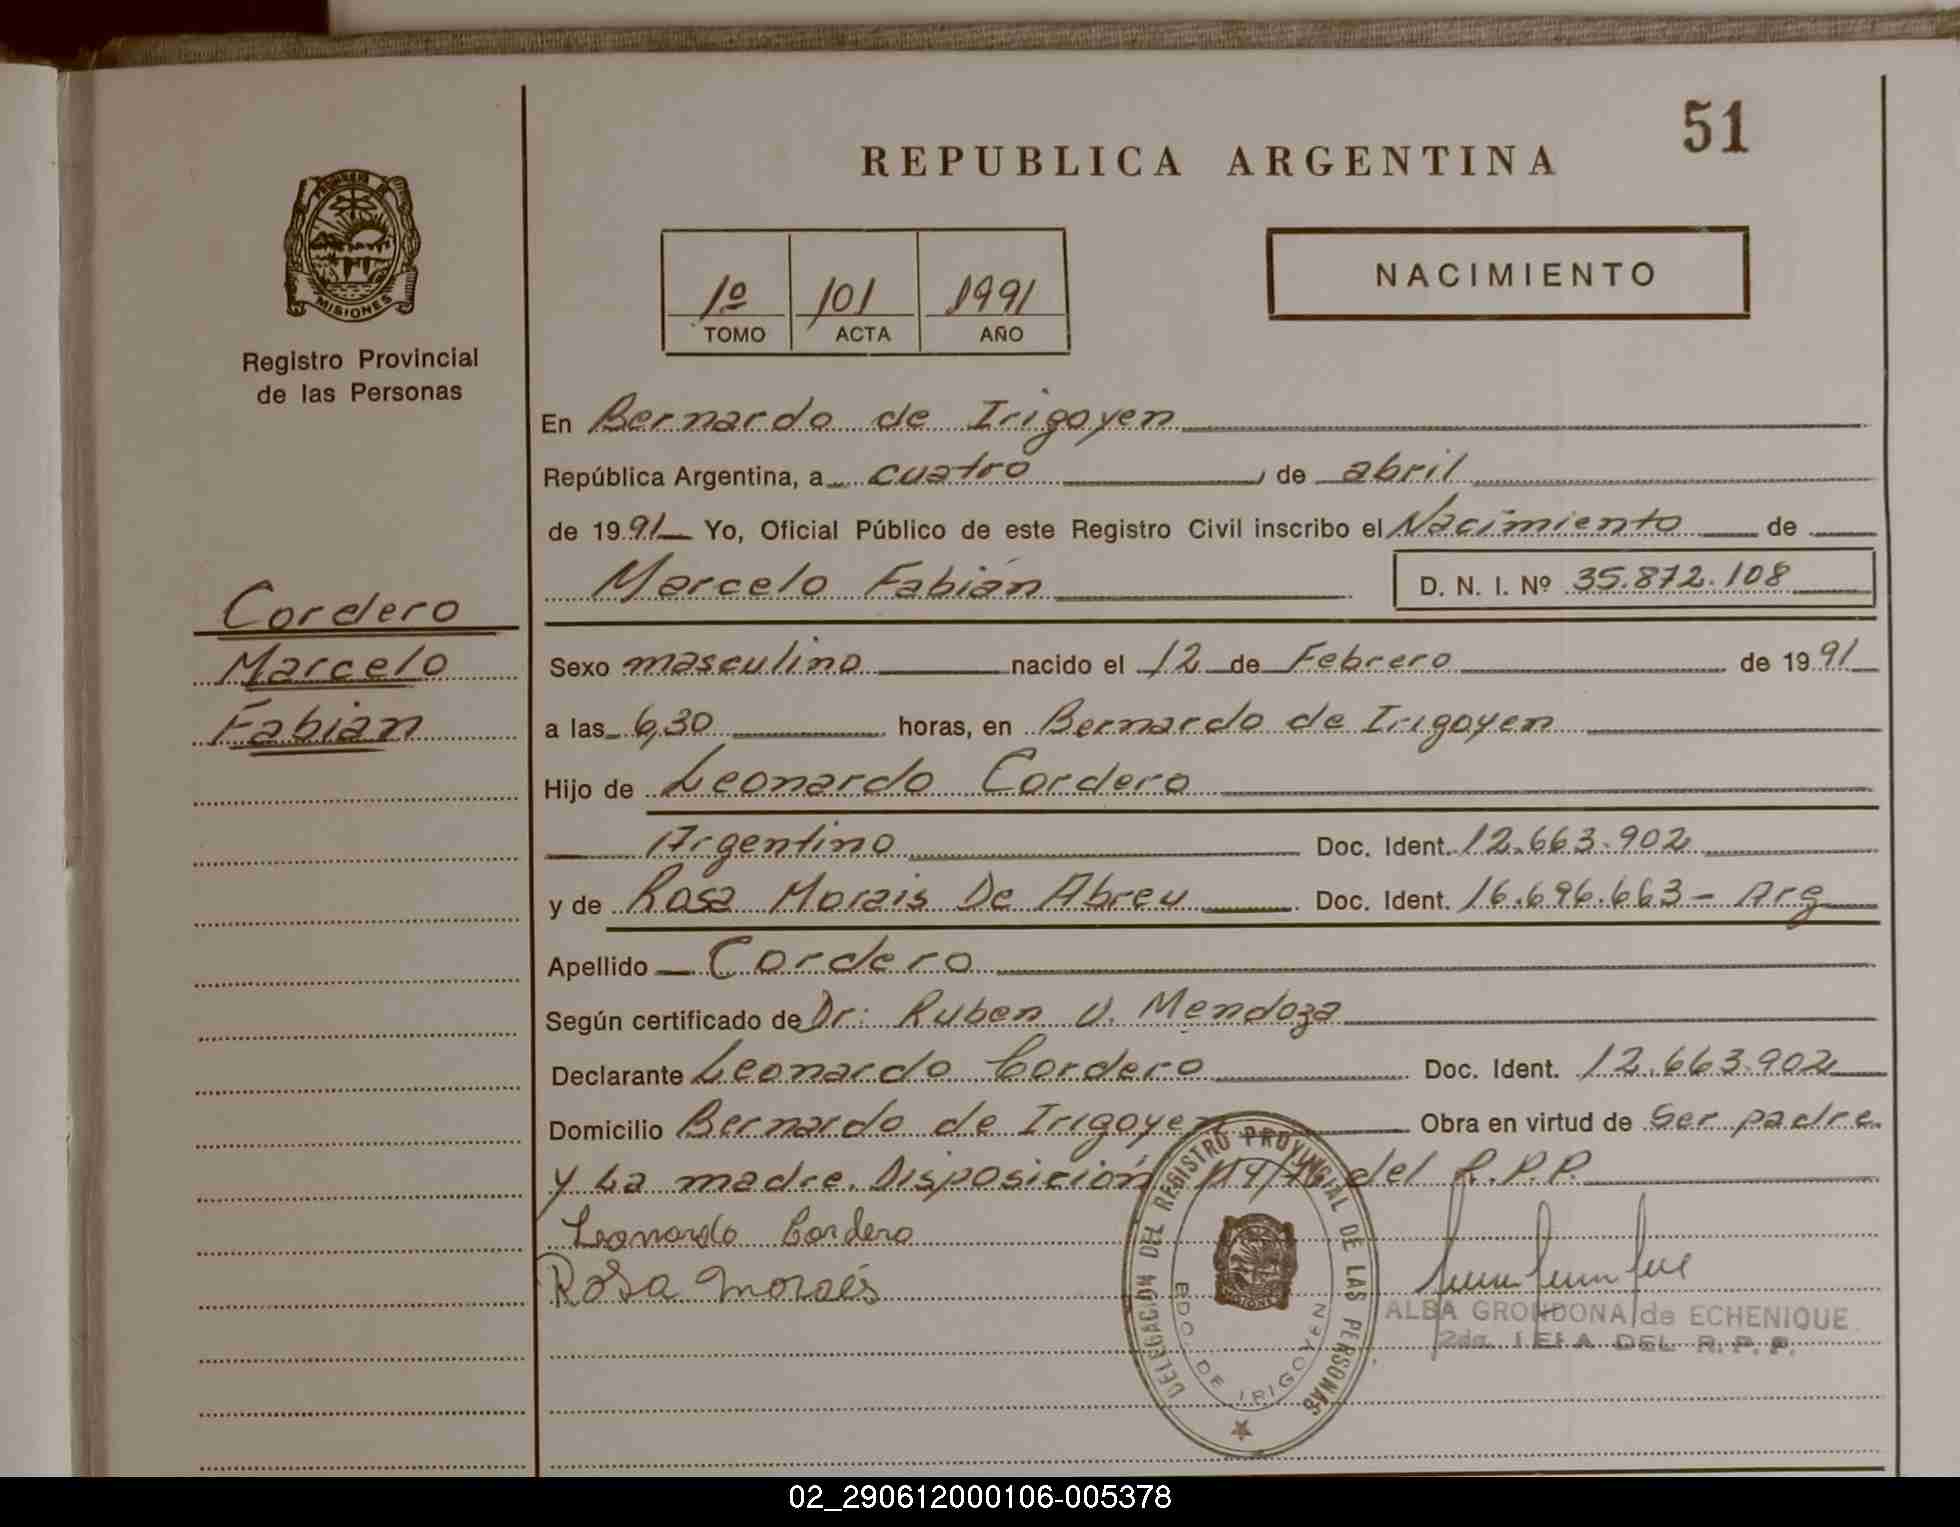 51
REPUBLICA ARGENTINA
PROVINCIA DE
MISIONES
Registro Provincial
de las Personas
1º 101 1991
TOMO ACTA AÑO
NACIMIENTO
En Bernardo de Irigoyen
República Argentina, a cuatro, de abril
de 1991 Yo, Oficial Público de este Registro Civil inscribo el Nacimiento de
Marcelo Fabián D. N. I. Nº 35.872.108
Cordero
Marcelo
Fabián
Sexo masculino nacido el 12 de Febrero de 1991
a las 6,30 horas, en Bernardo de Irigoyen
Hijo de Leonardo Cordero
Argentino Doc. Ident. 12.663.902
y de Rosa Morais De Abreu Doc. Ident. 16.696.663 - Arg
Apellido Cordero
Según certificado de Dr: Ruben V. Mendoza
Declarante Leonardo Cordero Doc. Ident. 12.663.902
Domicilio Bernardo de Irigoyen Obra en virtud de Ser padre
y La madre. Disposición del R.P.P.
Leonardo Cordero
Rosa Moraés
DELEGACION DEL REGISTRO PROVINCIAL DE LAS PERSONAS
BDO. DE IRIGOYEN
ALBA GRONDONA de ECHENIQUE
2da. JEFA DEL R.P.P.
02_290612000106-005378